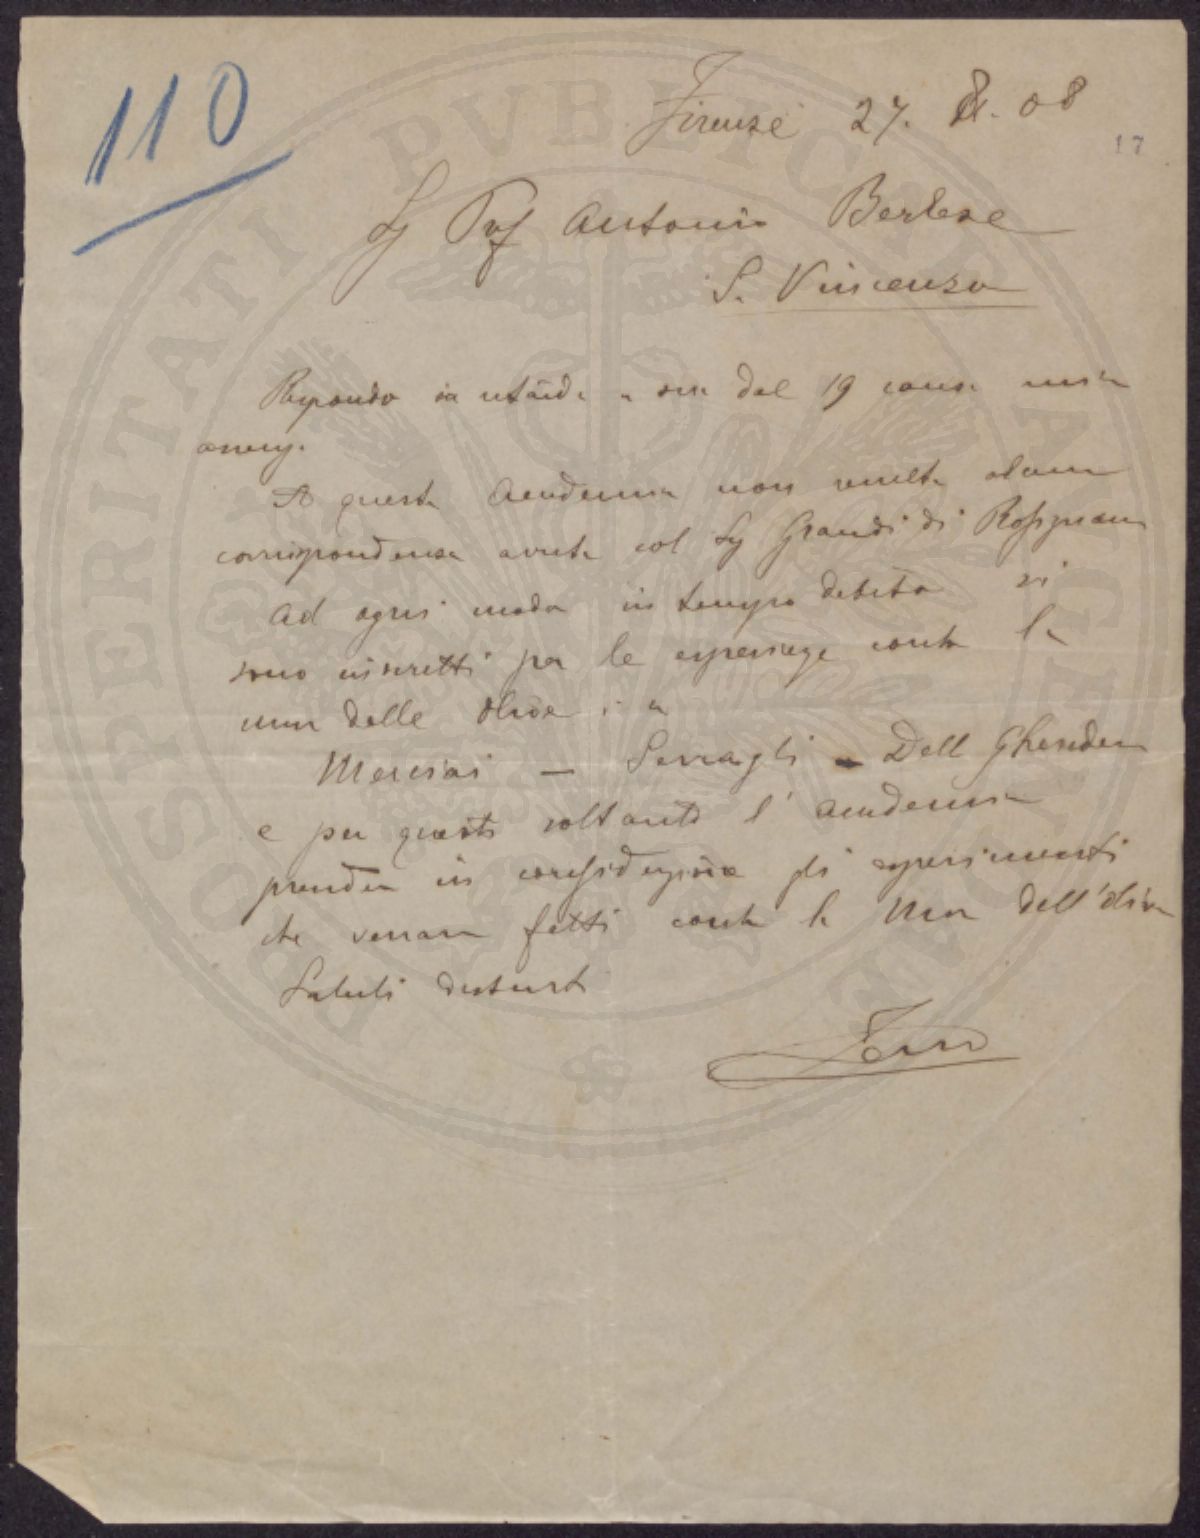 110
Firenze 27. 8. 08
17
Sg Prof Antonio Berlese
S. Vincenzo
Rispondo in ritardo a sua del 19 causa mia
assenz.
A questa Accademia non risulta alcuna
corrispondenza avuta col Sg Grandi di Rossignano
Ad ogni modo in tempo debito si
sono inscritti per le esperienze contro la
mosca delle Olive i
Marciai — Serragli - Dell Gherardesca
e per questi soltanto l'Accademia
prenderà in considerazione gli esperimenti
che verranno fatti contro la Mosca dell'oliva
Saluti distinti
PROSPERITATI PVBLICAE AVGENDAE